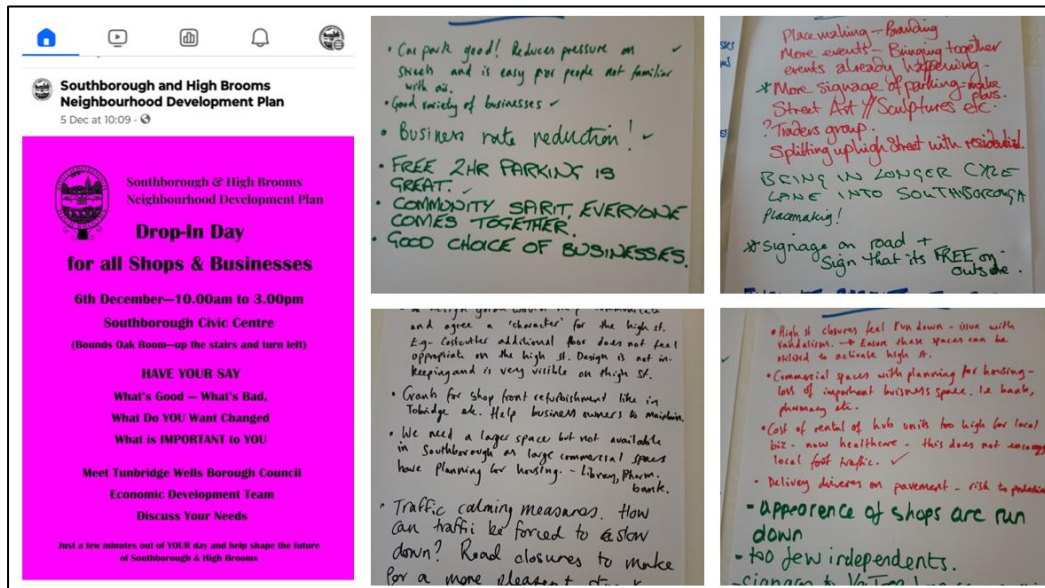 Southborough and High Brooms
Neighbourhood Development Plan
5 Dec at 10:09 ·
Southborough & High Brooms
Neighbourhood Development Plan
Drop-In Day
for all Shops & Businesses
6th December—10.00am to 3.00pm
Southborough Civic Centre
(Bounds Oak Room—up the stairs and turn left)
HAVE YOUR SAY
What's Good — What's Bad,
What Do YOU Want Changed
What is IMPORTANT to YOU
Meet Tunbridge Wells Borough Council
Economic Development Team
Discuss Your Needs
Just a few minutes out of YOUR day and help shape the future
of Southborough & High Brooms
• Car park good! Reduces pressure on ✓
streets and is easy for people not familiar
with
• Good variety of businesses ✓
• Business rate reduction! ✓
• FREE 2HR PARKING IS
GREAT. ✓
• COMMUNITY SPIRIT, EVERYONE
COMES TOGETHER.
• GOOD CHOICE OF BUSINESSES.
Placemaking – Branding
More events – Bringing together
events already happening.
* More signage of parking – make
Street Art // Sculptures etc.
? Traders group.
Splitting up high Street with residential.
BEING IN LONGER CYCLE
LANE INTO SOUTHBOROUGH
Placmaking!
* Signage on road +
Sign that its FREE on
outside.
and agree a 'character' for the high st.
E.g. Costcutter additional floor does not feel
appropriate on the high st. Design is not in-
keeping and is very visible on high st.
• Grants for shop front refurbishment like in
Tobridge etc. Help business owners to maintain.
• We need a larger space but not available
in Southborough as large commercial spaces
have planning for housing. – Library, Pharm.
bank.
• Traffic calming measures. How
can traffic be forced to slow
down? Road closures to make
for a more pleasant
• High st closures feel run down – issue with
vandalism. → Ensure these spaces can be
utilised to activate high st.
• Commercial spaces with planning for housing –
loss of important business space. I.e bank,
pharmacy etc.
• Cost of rental of hub units too high for local
biz – now healthcare – this does not encourag
local foot traffic. ✓
• Delivery drivers on pavement – risk to pedestrian
- appearence of shops are run
down
- too few independents.
- signage to